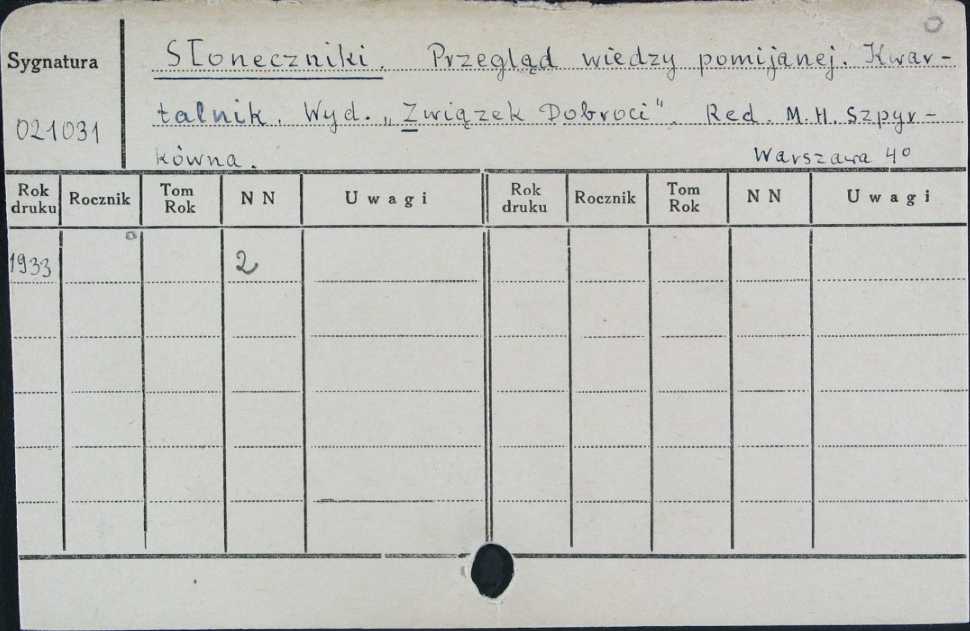 Sygnatura
021031
Słoneczniki. Przegląd wiedzy pomijanej. Kwar-
talnik. Wyd. „Związek Dobroci". Red. M. H. Szpyr-
kówna.
Warszawa 4º
Rok druku Rocznik Tom Rok NN Uwagi Rok druku Rocznik Tom Rok NN Uwagi
1933 2